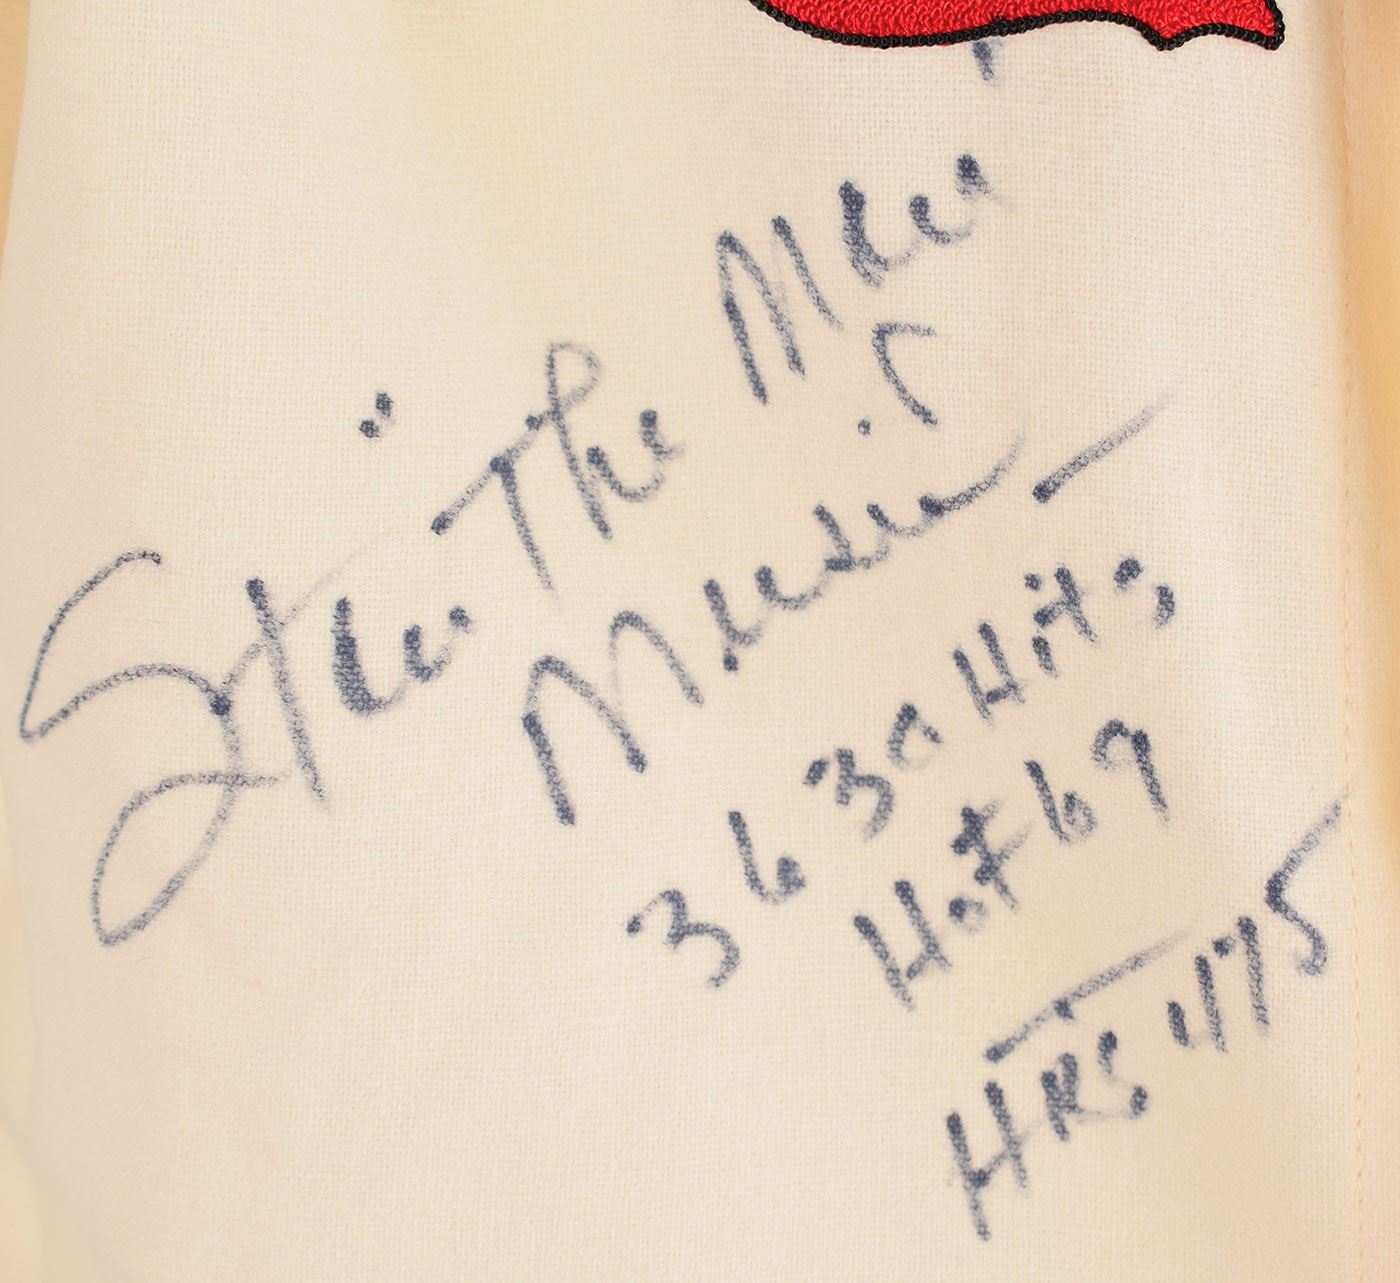 Stan "The Man"
Musial
3630 Hits
HoF 69
HRS 475